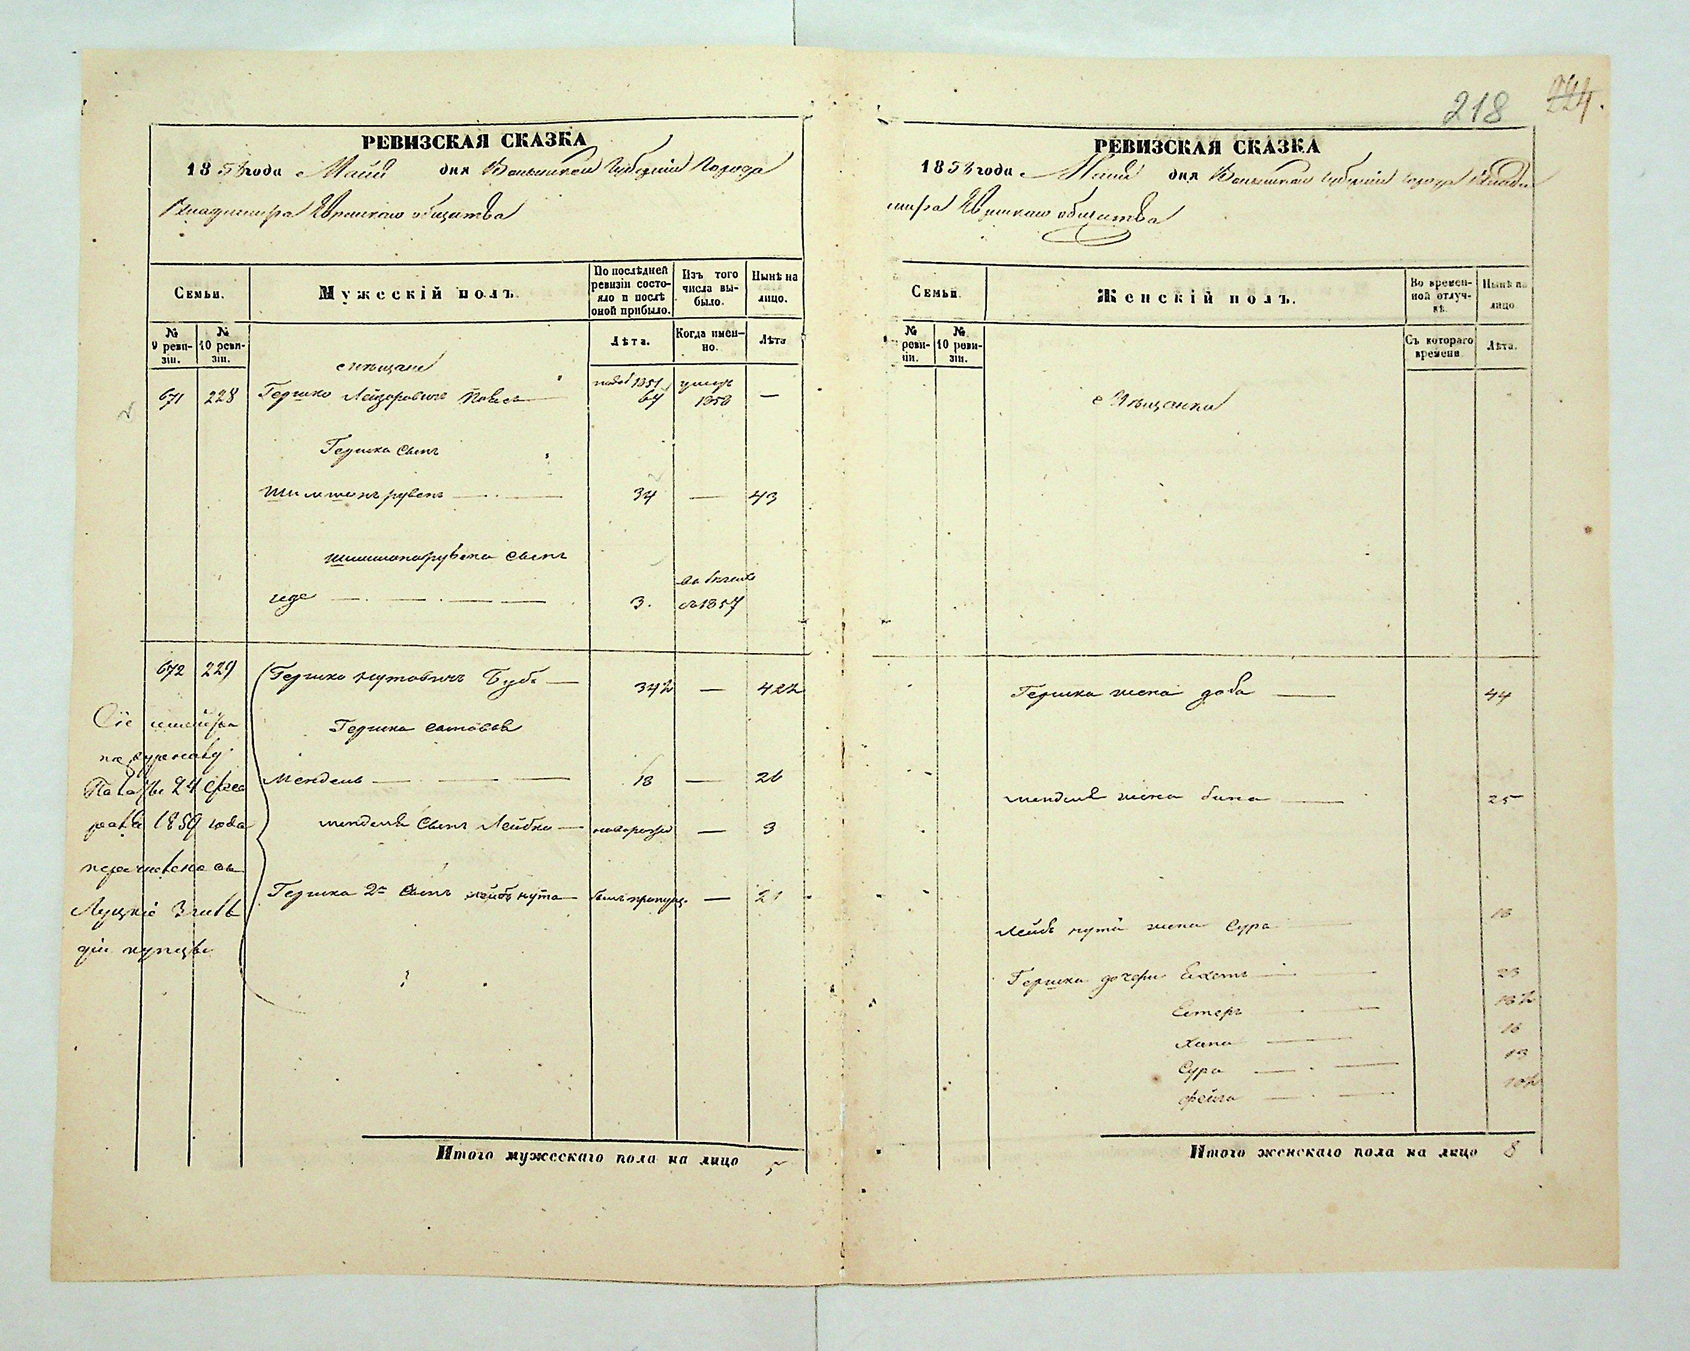 218 224.
РЕВИЗСКАЯ СКАЗКА
1858 года Майя дня Волынской Губерніи Города
Владимира Еврейскаго общества
Семьи.
Мужескій полъ.
По послѣдней ревизіи состояло и послѣ оной прибыло.
Изъ того числа выбыло.
Нынѣ на лицо.
№ 9 ревизіи.
№ 10 ревизіи.
Лѣта.
Когда именно.
Лѣта
мѣщане
671 228 Гершко Лейзоровичъ 1851 64 умеръ 1856 —
Гершка сынъ
Шимшонъ рувенъ 34 — 43
Шимшона рувена сынъ
геде 3. съ 1857
672 229 Гершко нутовичъ 34½ — 42½
Гершка сыновья
Мендель 18 — 26
Менделя сынъ Лейбко новорожд — 3
Гершка 2й сынъ лейбъ нута былъ пропущ. — 21
Сіе семейство
по
24
1859 года
перечислено въ
Луцкіе 3 гиль
діи купцы
Итого мужескаго пола на лицо 5
РЕВИЗСКАЯ СКАЗКА
1858 года Майя дня Волынской Губерніи города Влади
мира Еврейскаго общества
Семьи.
Женскій полъ.
Во временной отлучкѣ.
Нынѣ на лицо
№ 9 ревизіи.
№ 10 ревизіи.
Съ котораго времени
Лѣта.
Мѣщанки
Гершка жена доба 44
менделя жена бина 25
Лейбъ нути жена Сура 18
Гершка дочери 23
Естеръ 18½
Хана 16
Сура 13
фейга 10½
Итого женскаго пола на лицо 8